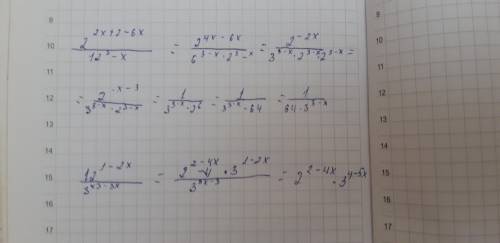 9 9
10 2^{2x+2-6x} / 12^{3-x} = 2^{4x-6x} / 6^{3-x}·2^{3-x} = 2^{-2x} / 3^{3-x}·2^{3-x}·2^{3-x} = 10
11 11
12 = 2^{-x-3} / 3^{3-x}·2^{3-x} = 1 / 3^{3-x}·2^{6} = 1 / 3^{3-x}·64 = 1 / 64·3^{3-x} 12
13 13
14 14
15 12^{1-2x} / 3^{x3-3x} = 2^{2-4x}·3^{1-2x} / 3^{3x-3} = 2^{2-4x}·3^{4-5x} 15
16 16
17 17